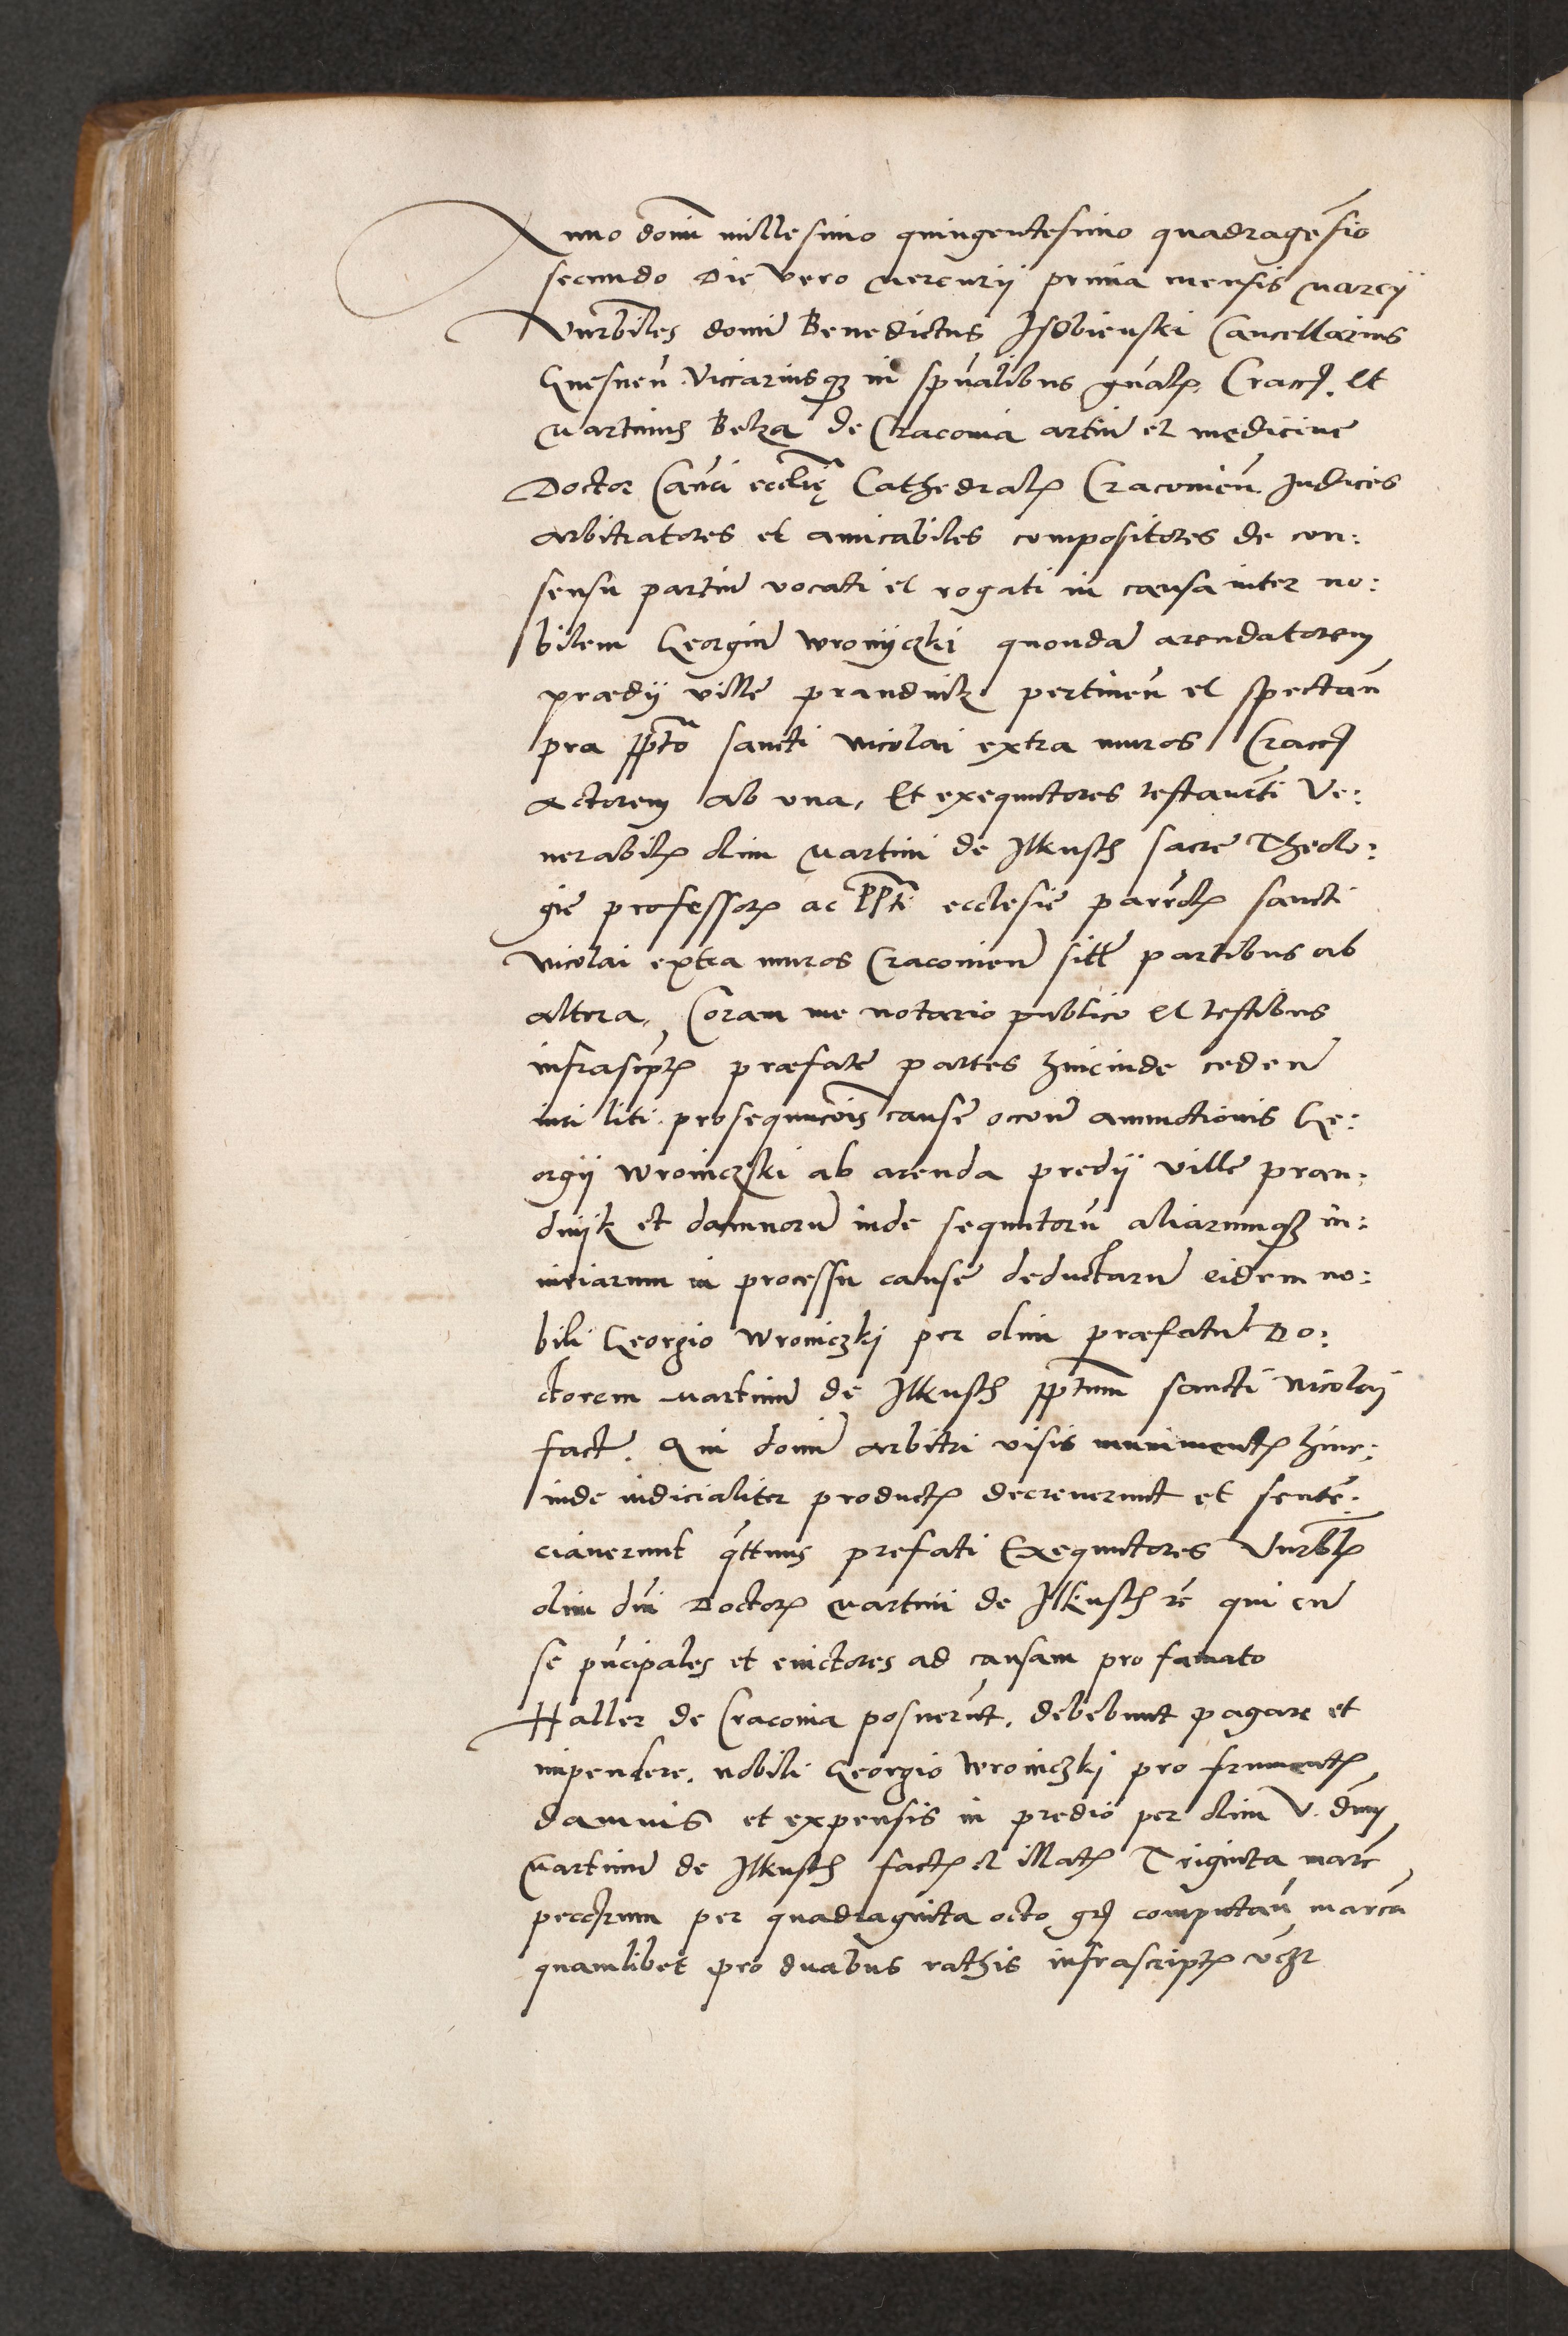 Anno domi millesimo quingentesimo quadragesio
secundo Die vero Mercurii prima mensis Marcij
Vnrbiles domi Benedictus Isdbienski Cancellarius
Gnesnen Viccariusq3 in spualibus gnalis Cracc et
Martinus Belza de Cracouia artiu et medicine
Doctor Canci ecclie Cathedralis Cracouien Judices
arbitratores et amicabiles compositores de con:
sensu partiu vocati et rogati in causa inter no:
bilem Georgiu Wronyczki quonda arendatorem
prædij ville prandnik pertinen et spectan
pra ppto sancti Nicolai extra muros Cracc
Actorem ab vna, Et exequutores testamti Ve:
nerabilis olim Martini de Ilkusch sacre Theolo:
gie professoris ac ppti ecclesie parrolis sancti
Nicolai extra muros Cracouien sitt partibus ab
altera, Coram me notario publico et testibus
infrascptis præfate partes hincinde ceden
iuri liti prosequucois cause occone ammotionis Ge:
orgij Wroniczski ab arenda predij ville pran:
dnijk et damnoru inde sequutoru aliarumq3 in:
iuriarum in processu cause deductaru eidem no:
bili Georgio Wroniczkj per olim præfatu Do:
ctorem Martinu de Ilkusch pptum sancti Nicolaj
fact. Qui domi arbitri visis munimentis hinc:
inde iudicialiter productis decreuerunt et sente:
ciauerunt qttnus prefati Exequutores Vnrblis
olim dni Doctoris Martini de Ilkusch re qui en
se pncipales et euictores ad causam pro famato
Haller de Cracouia posuerunt, debebunt pagare et
impendere, nobili Georgio Wroniczkj pro frumentis
damnis et expensis in predio per olim V. dnm
Martinu de Ilkusch factis et illatis Triginta marc
pecctrum per quadraginta octo gr computan marca
quamlibet pro duabus rathis infrascriptis vcz